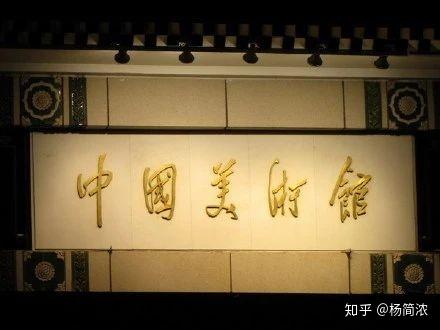 中國美術館
知乎 @杨简浓